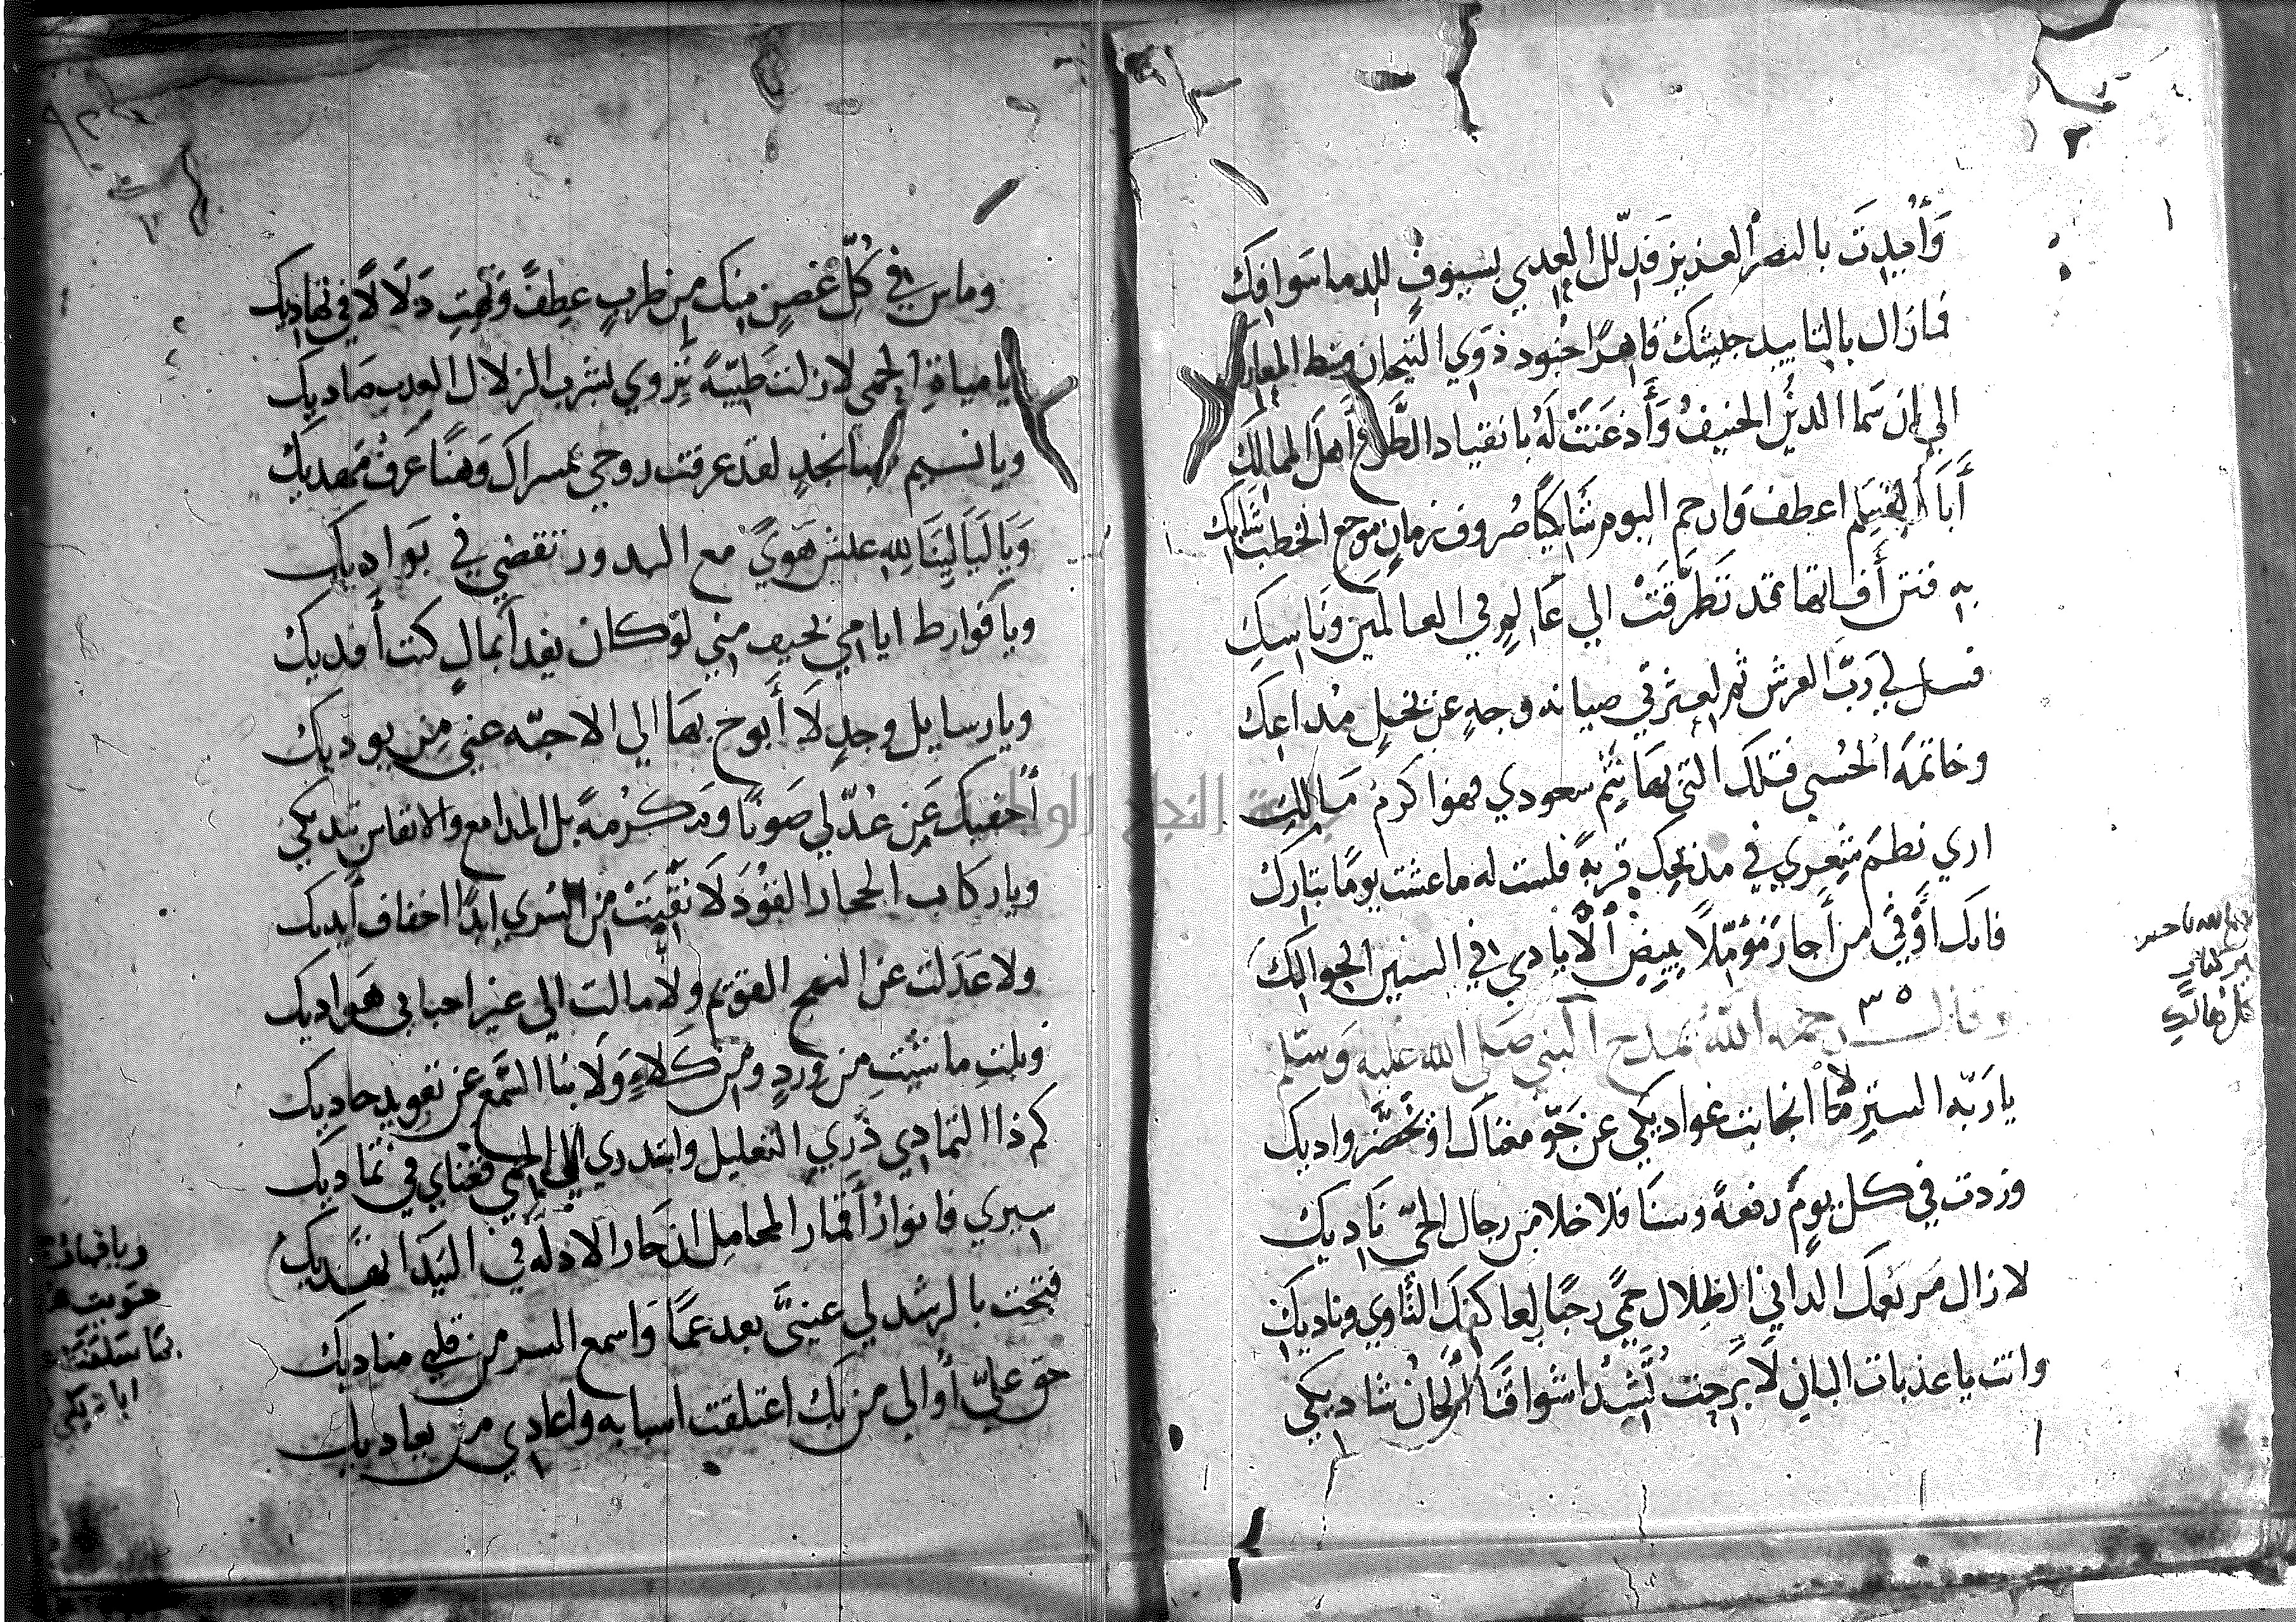 وَأُيِّدتَ بالنصر العزيز فذلل العدي بسيوفٍ للدما سَوافِكَ
فما زال بالتاييد جيشك قاهرًا جنود ذوي التيجان وسط المعارك
الي ان سَما الدينُ الحنيفُ وَأَذعَنَتْ لَهُ بانقياد الطَّوع أهل الممالك
أَبَا القاسم اعطف وَارحم اليوم شَاكيًا صُروف زمانٍ موجع الخطب شَابك
به فتن أفاتها قد تَطَرَّقَتْ الي عَالمٍ في العالمين وَنَاسِك
فسل لي رَبَّ العرش ثم لعترتي صيانة وجهٍ عن بخيلٍ مُداعك
وخاتمة الحُسني فتلك التي بها يَتمّ سعودي فهو اكرم مَالِك
اري نظم شِعري في مديحك قربةً فلست له ما عشت يومًا بتارك
فانك أَوْفي من أجار مُؤمّلًا ببيض الأيادي في السنين الحوالك
وقال رحمه الله يمدح النبي صلي الله عليه وَسَلم
٣٥
يا رَبّة الستر لا انجابت غواديكي عن جَوّ مغناك او تخضَّر واديك
وزدت في كل يومٍ رفعةً وسنَا فلا خلا من رجال الحيّ نَاديك
لا زال مربعك الداني الظلال حمًي رحبًا لعاكفك الثاوي وباديك
وانت يا عذبات البان لَا بَرحت تُنشِدُ اشواقَنَا ألحانُ شاديكي
جامعة النجاح الوطنية
وماس في كُلّ غصنٍ منك من طربٍ عِطفٌ وَتهتِ دَلَالًا في تهاديك
يا مياة الحمي لا زلت طيّبةً يروي بشرب الزلال العذب صاديك
ويا نسيم صبا نجدٍ لقد عرفت روحي بمسراك وَهنًا عَرفُ مُهديك
وَيَا لَيَالينَا لِله عيش هَوًي مع البدور تقضي في بَواديك
ويا فوارط ايامي بخيف مني لو كان يفدا بمالٍ كنت أفديك
ويا رسايل وجدٍ لَا أَبوح بها الي الاحبّه عني من يوديك
أخفيك عَن عُذّلي صَونًا وتكرُمةً بل المدامع والانفاس تبديكي
ويا ركاب الحجاز القُوْدَ لَا نَقِبَتْ من السُري ابدًا اخفاف أيديك
ولا عَدَلت عن النهج القويم ولا مالت الي غير احبابي هَواديك
ونلتِ ما شيت من وِردٍ ومن كَلاءٍ وَلَا نبا السَّمع عن تغريد حاديك
كم ذا التمادي ذَري التعليل وابتدري الي الحمي فعَناي في تماديك
سيري فانوارُ أقمار المحامل ان حار الادلّه في البَيدا تهديك
فتحت بالرشد لي عينيَّ بعد عمًا وَاسمع السر من قلبي مناديك
حق عليّ أُوالي من بك اعتلقت اسبابه واعادي من يعاديك